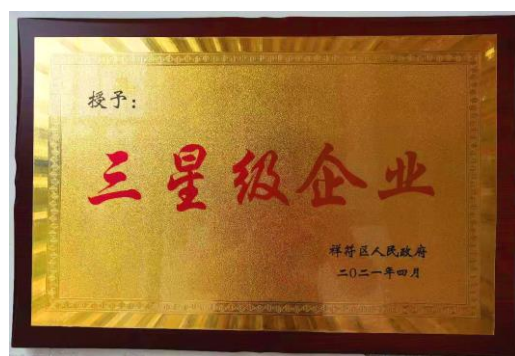 授予：
三星级企业
祥符区人民政府
二〇二一年四月